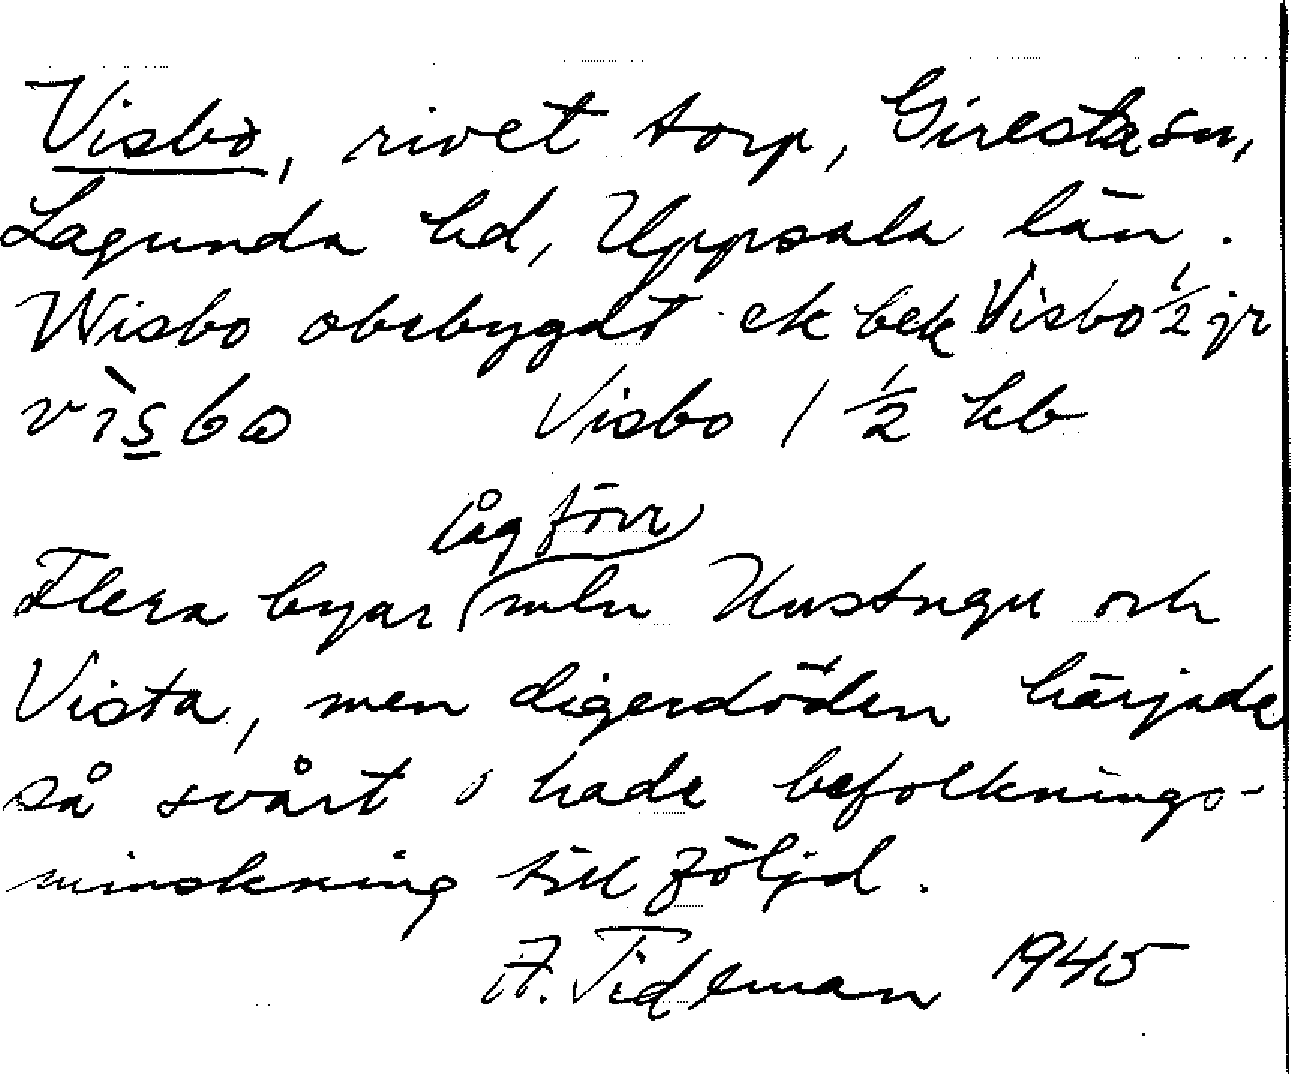 Visbo, rivet torp, Giresta sn,
Lagunda hd, Uppsala län.
Wisbo obebyggt ek bek Visbo 1/2 jr
vìsbω Visbo 1 1/2 kb
låg förr
Flera byar mln Hustugu och
Vista, men digerdöden härjade
så svårt o hade befolknings-
minskning till följd.
A. Tideman 1945